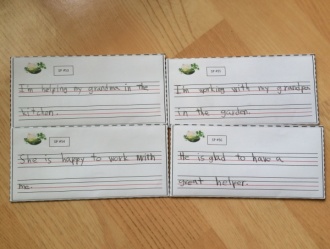 I'm helping my grandma in the
kitchen.
I'm working with my grandpa
in the garden.
She is happy to work with
me.
He is glad to have a
great helper.